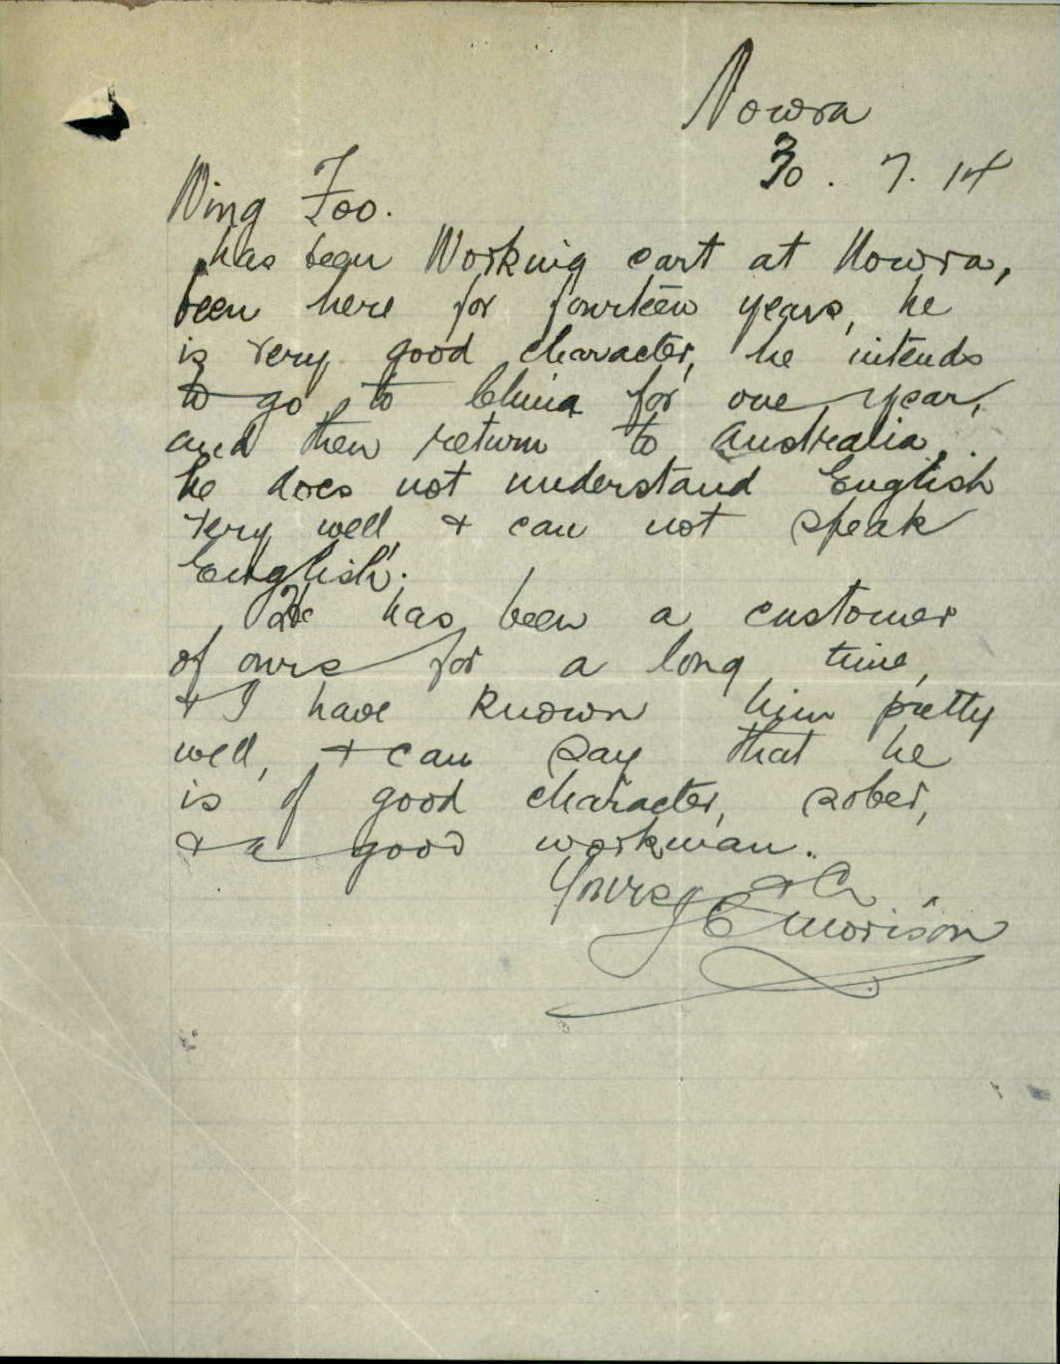 Nowra
30. 7. 14
Wing Foo.
has been Working cart at Nowra,
been here for fourteen years, he
is very good character, he intends
to go to China for one year,
and then return to Australia.
he does not understand English
very well, & can not speak
English.
He has been a customer
of ours for a long time,
& I have known him pretty
well, & can say that he
is of good character, sober,
& a good workman.
Yours &c
J C Morison